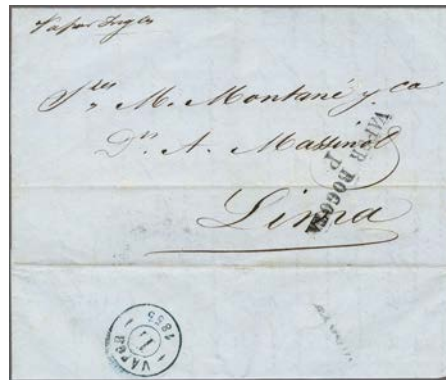 Vapor Ingles
Sres M. Montané y ca
Dn A. Massinot
Lima
VAPER BOGOTA
P
VAPOR
11
1855